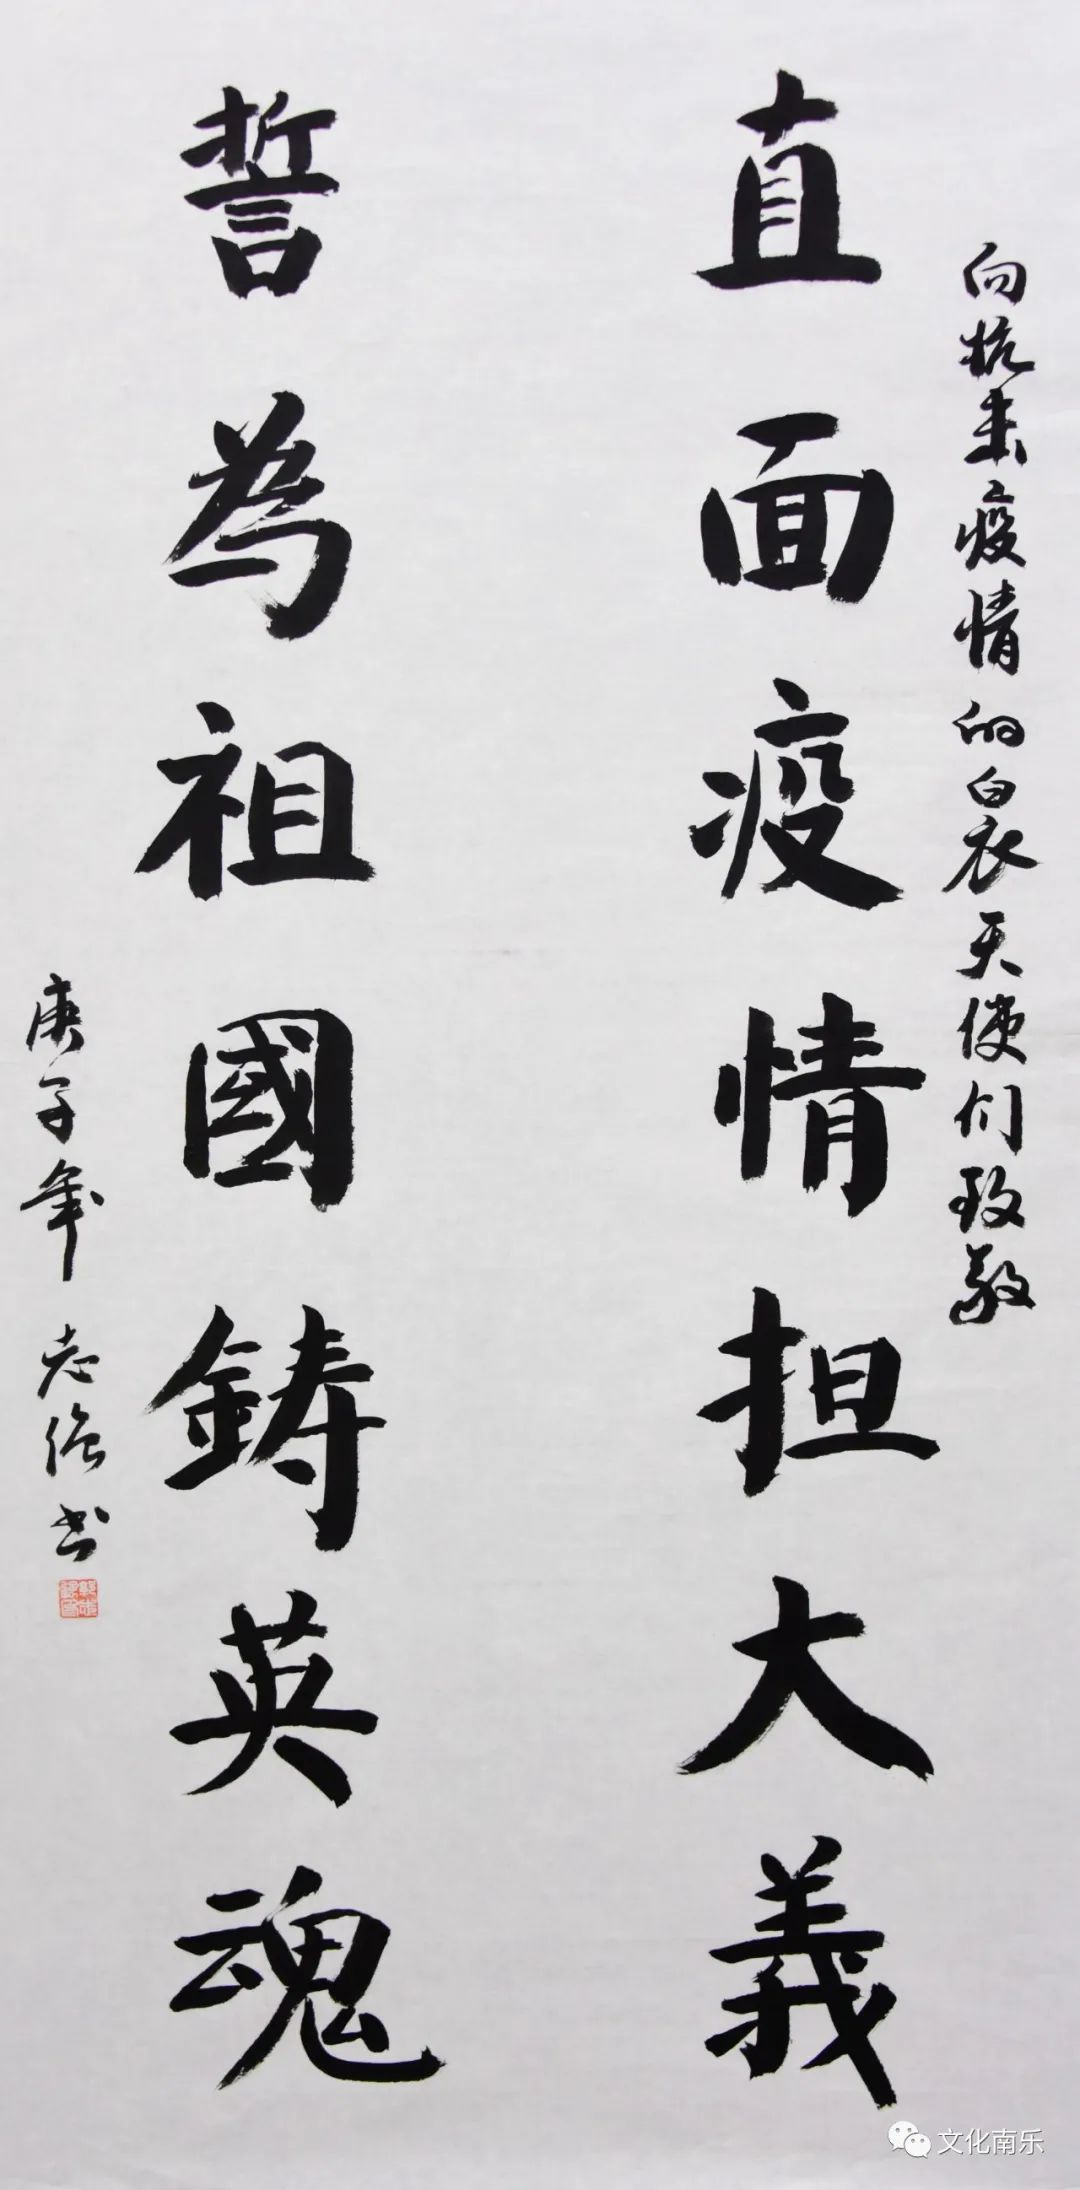 向抗击疫情的白衣天使们致敬
直面疫情担大義
誓為祖國鋳英魂
庚子年 志强书
文化南乐